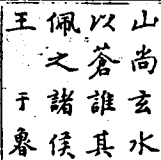 山尚玄水
以蒼誰其
佩之諸侯
王于魯